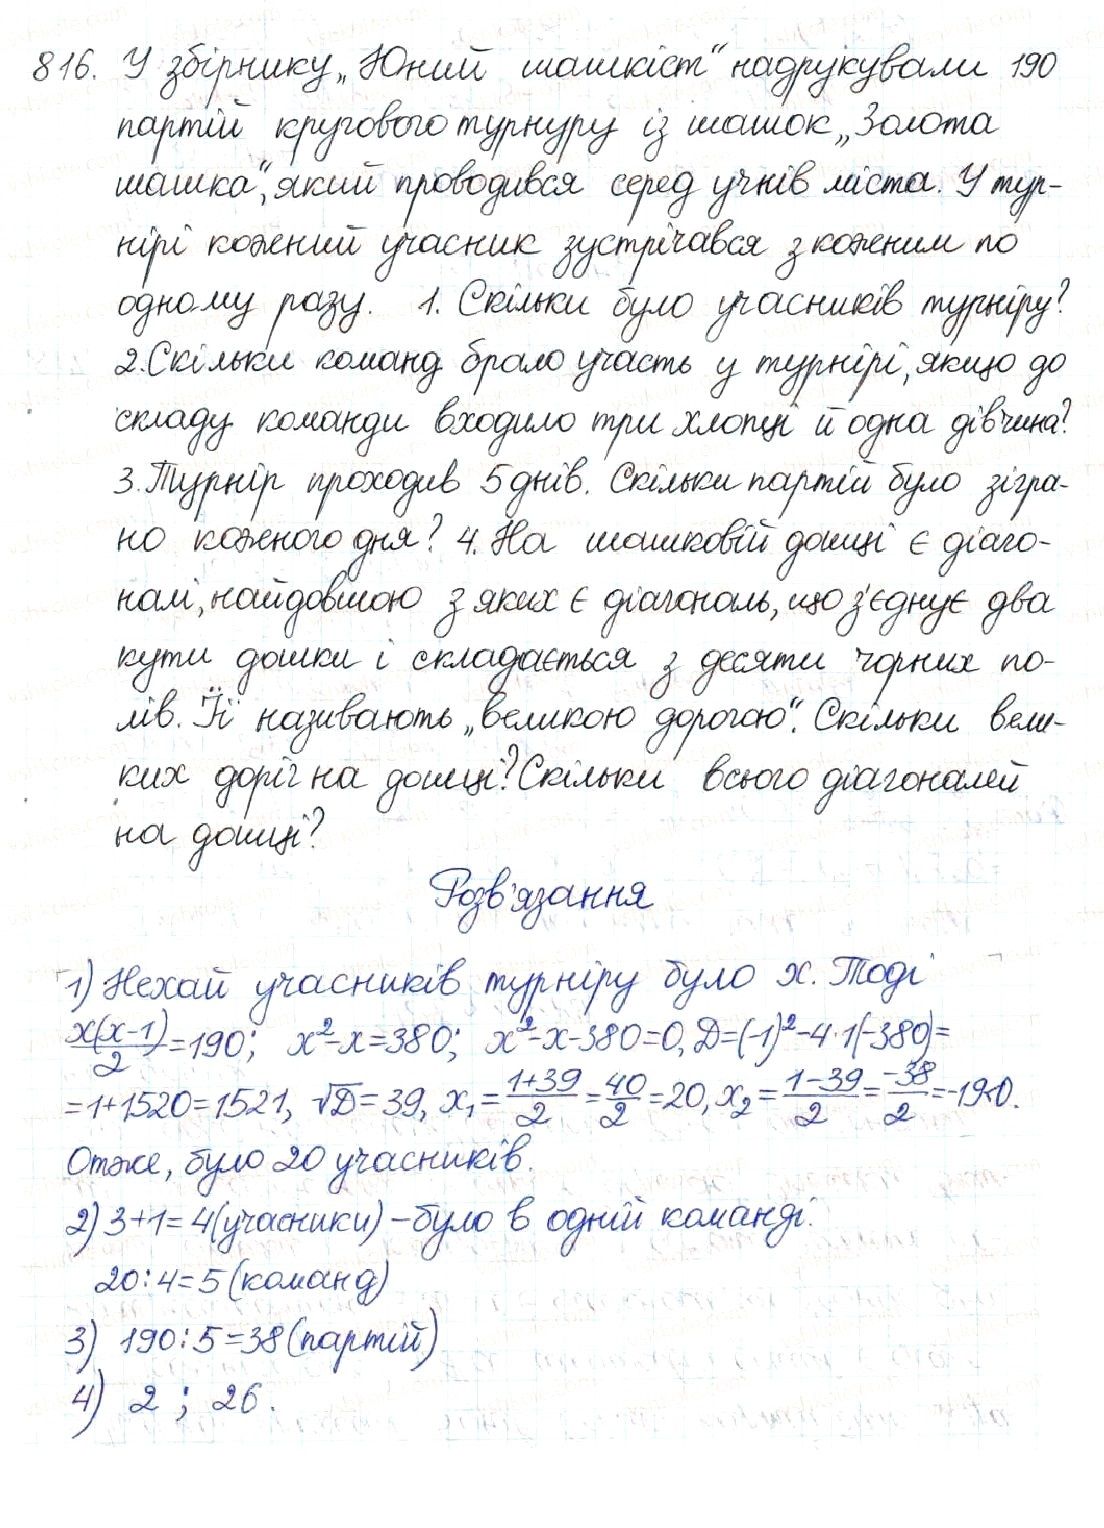 816. У збірнику „Юний шашкіст“ надрукували 190
партій кругового турнуру із шашок „Золота
шашка“, який проводився серед учнів міста. У тур-
нірі кожений учасник зустрічався з коженим по
одному разу. 1. Скільки було учасників турніру?
2. Скільки команд брало участь у турнірі, якщо до
складу команди входило три хлопці й одна дівчина?
3. Турнір проходив 5 днів. Скільки партій було зігра-
но коженого дня? 4. На шашковій дошці є діаго-
налі, найдовшою з яких є діагональ, що з'єднує два
кути дошки і складається з десяти чорних по-
лів. Її називають „великою дорогою“. Скільки вели-
ких доріг на дошці? Скільки всього діагоналей
на дошці?
Розв'язання
1) Нехай учасників турніру було x. Тоді
x(x-1)/2 = 190; x²-x=380; x²-x-380=0, D=(-1)²-4·1(-380)=
=1+1520=1521, √D=39, x₁=(1+39)/2=40/2=20, x₂=(1-39)/2=-38/2=-19<0.
Отже, було 20 учасників.
2) 3+1=4(учасники) – було в одній команді.
20:4=5(команд)
3) 190:5=38(партій)
4) 2 ; 26.